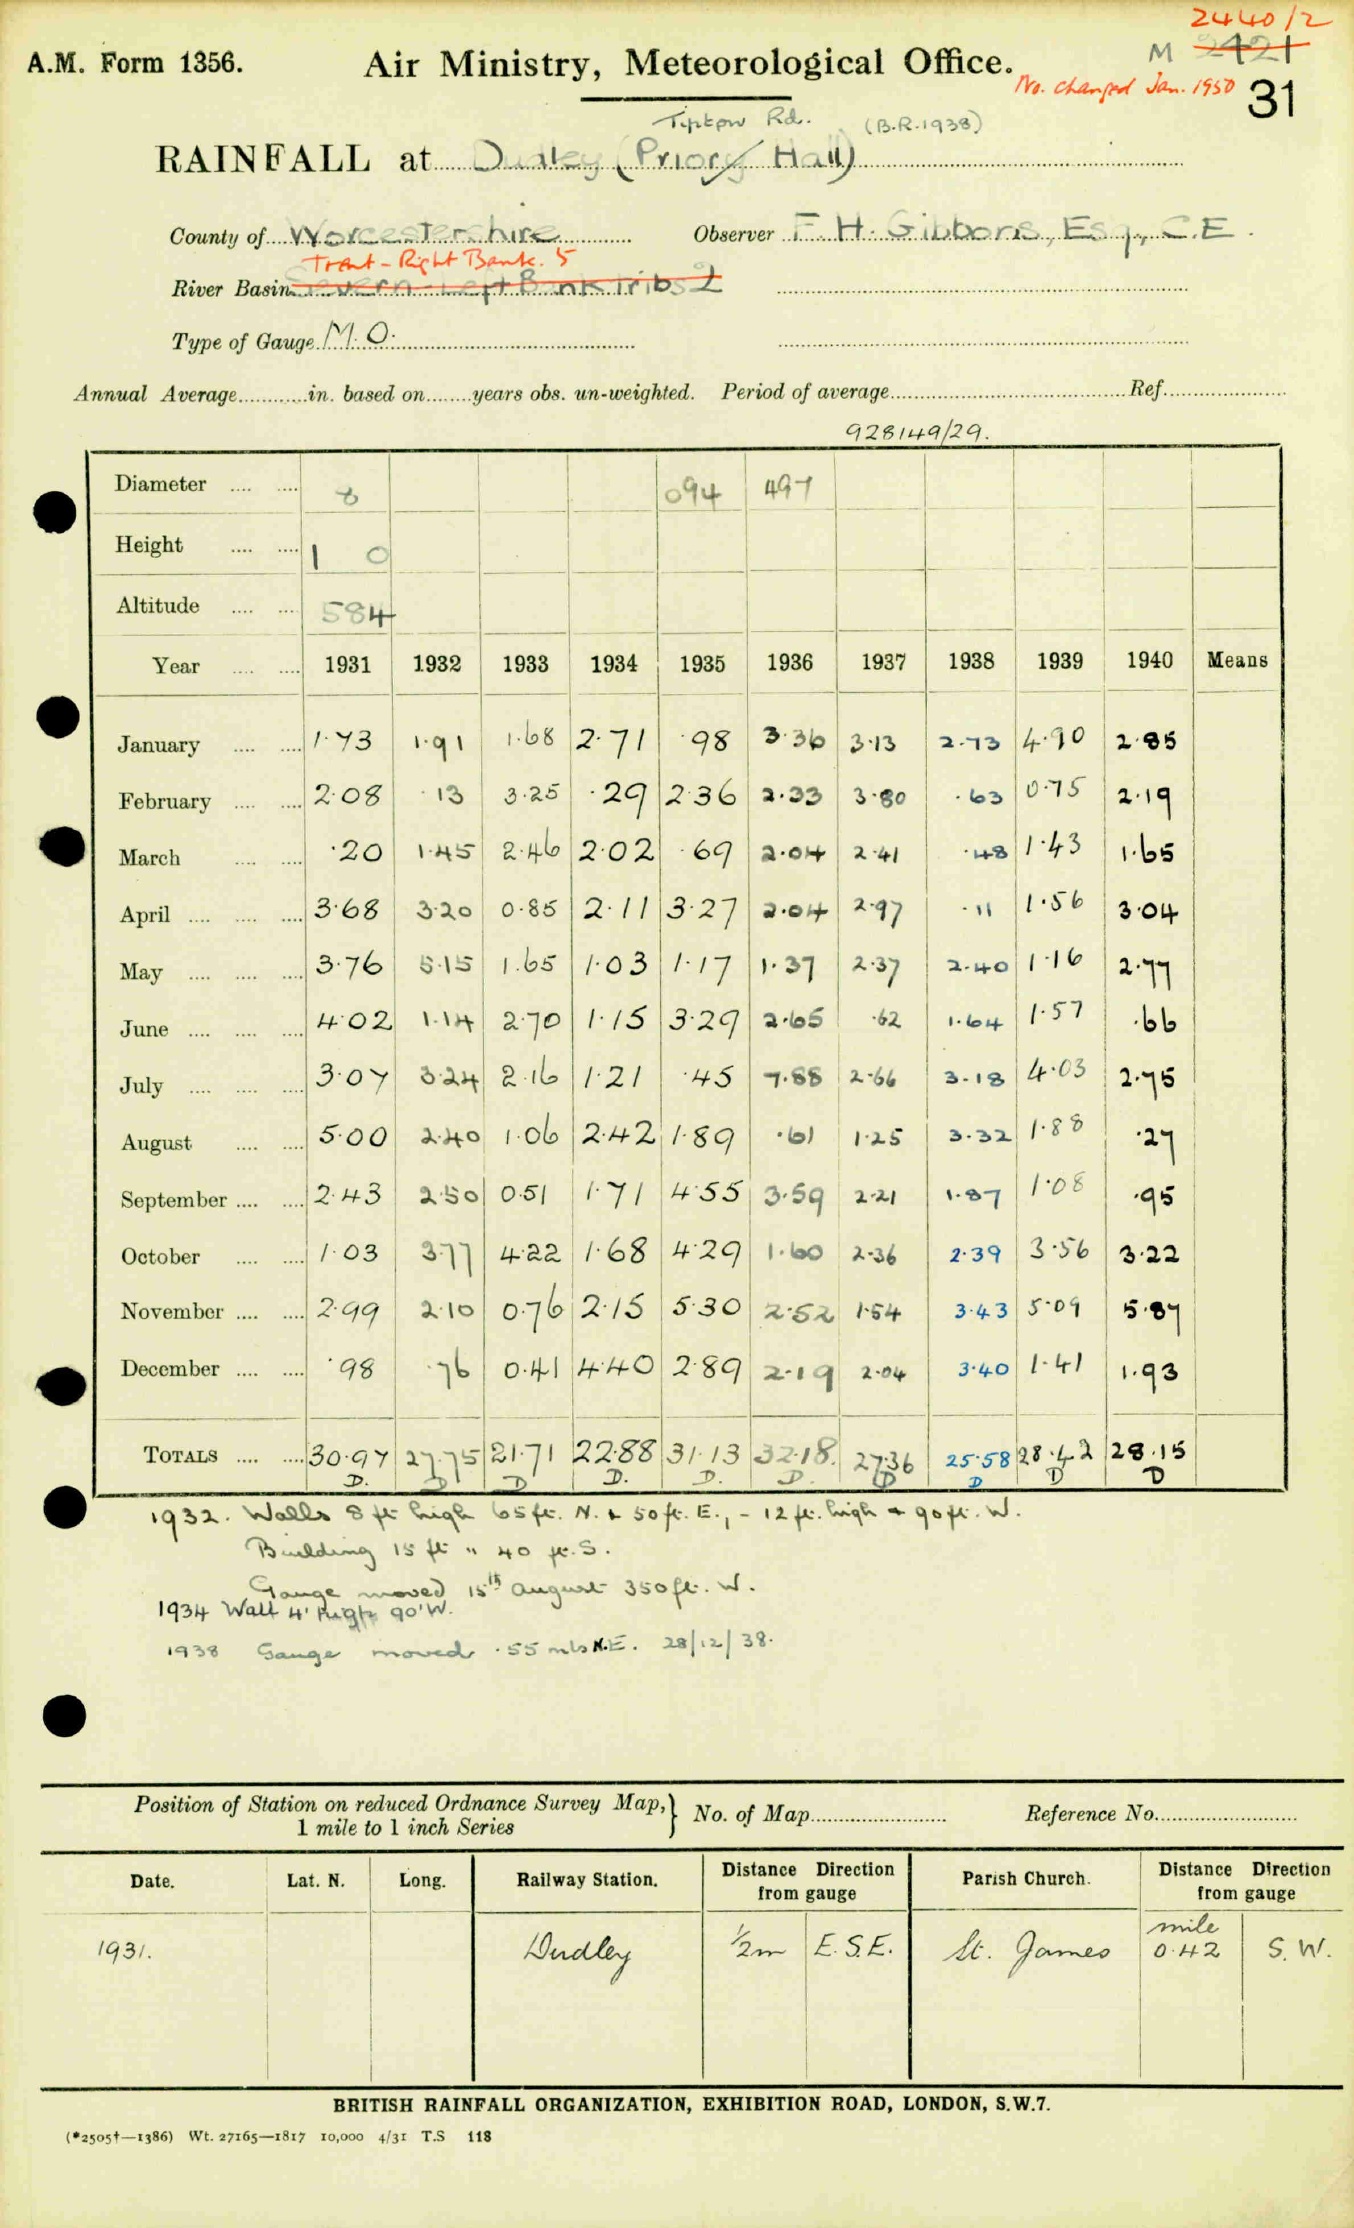 2440/2
A.M. Form 1356. Air Ministry, Meteorological Office. M 2421
No. changed Jan. 1950 31
Tipton Rd. (B.R. 1938)
RAINFALL at Dudley (Priory Hall)
County of Worcestershire Observer F. H. Gibbons, Esq., C.E.
Trent - Right Bank. 5
River Basin Severn - Left Bank Tribs 2
Type of Gauge M.O.
Annual Average in. based on years obs. un-weighted. Period of average Ref.
928149/29.
Diameter 8 094 497
Height 1 0
Altitude 584
Year 1931 1932 1933 1934 1935 1936 1937 1938 1939 1940 Means
January 1.73 1.91 1.68 2.71 .98 3.36 3.13 2.73 4.90 2.85
February 2.08 .13 3.25 .29 2.36 2.33 3.80 .63 0.75 2.19
March .20 1.45 2.46 2.02 .69 2.04 2.41 .48 1.43 1.65
April 3.68 3.20 0.85 2.11 3.27 2.04 2.97 .11 1.56 3.04
May 3.76 5.15 1.65 1.03 1.17 1.37 2.37 2.40 1.16 2.77
June 4.02 1.14 2.70 1.15 3.29 2.65 .62 1.64 1.57 .66
July 3.07 3.24 2.16 1.21 .45 7.88 2.66 3.18 4.03 2.75
August 5.00 2.40 1.06 2.42 1.89 .61 1.25 3.32 1.88 .27
September 2.43 2.50 0.51 1.71 4.55 3.59 2.21 1.87 1.08 .95
October 1.03 3.77 4.22 1.68 4.29 1.60 2.36 2.39 3.56 3.22
November 2.99 2.10 0.76 2.15 5.30 2.52 1.54 3.43 5.09 5.87
December .98 .76 0.41 4.40 2.89 2.19 2.04 3.40 1.41 1.93
TOTALS 30.97 27.75 21.71 22.88 31.13 32.18. 27.36 25.58 28.42 28.15
D. D D D. D. D. D D D D
1932. Walls 8 ft high 65 ft. N. & 50 ft. E., - 12 ft. high & 90 ft. W.
Building 15 ft " 40 ft. S.
Gauge moved 15th August 350 ft. W.
1934 Wall 4' high 90' W.
1938 Gauge moved .55 mls N.E. 28/12/38.
Position of Station on reduced Ordnance Survey Map, 1 mile to 1 inch Series } No. of Map Reference No.
Date. Lat. N. Long. Railway Station. Distance Direction from gauge Parish Church. Distance Direction from gauge
1931. Dudley 1/2 m E.S.E. St. James mile 0.42 S.W.
BRITISH RAINFALL ORGANIZATION, EXHIBITION ROAD, LONDON, S.W.7.
(*2505†—1386) Wt. 27165—1817 10,000 4/31 T.S 118